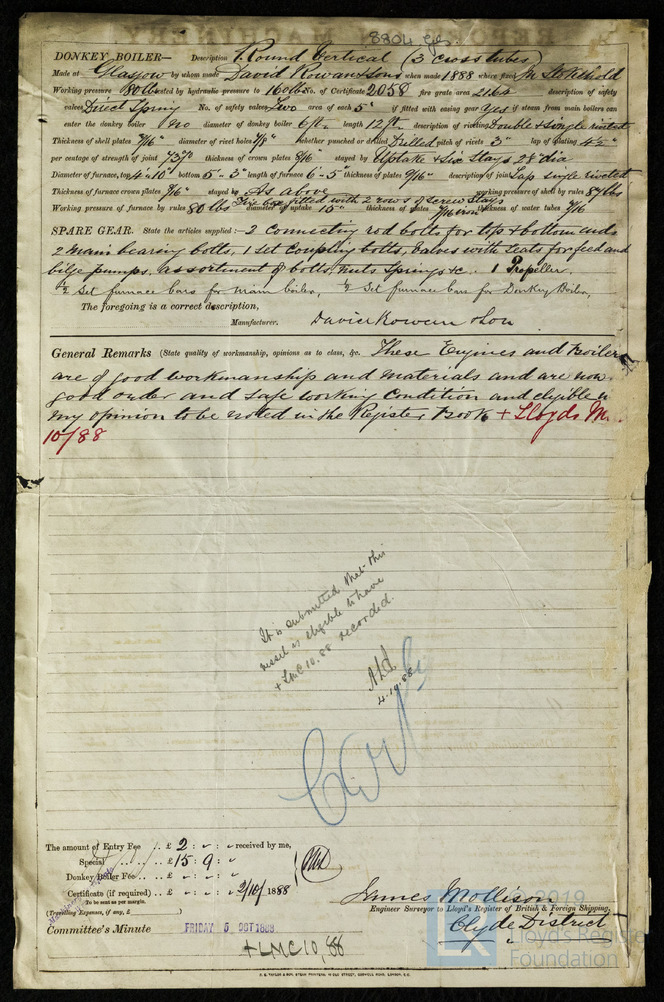 8804 Gls.
DONKEY BOILER— Description 1 Round Vertical (3 cross tubes)
Made at Glasgow by whom made David Rowan & Son when made 1888 where fixed In Stokehold
Working pressure 80 lbs tested by hydraulic pressure to 160 lbs No. of Certificate 2058 fire grate area 21 description of safety
valves Direct Spring No. of safety valves Two area of each 5" if fitted with easing gear Yes if steam from main boilers can
enter the donkey boiler No diameter of donkey boiler 6 ft length 12 ft description of riveting Double & single riveted
Thickness of shell plates 7/16" diameter of rivet holes 7/8" whether punched or drilled Drilled pitch of rivets 3" lap of plating 4½"
per centage of strength of joint 73% thickness of crown plates stayed by Uptake & Six Stays 2 dia
Diameter of furnace, top 4'-10" bottom 5'-3" length of furnace 6-5 thickness of plates 9/16" description of joint Lap single riveted
Thickness of furnace crown plates 9/16" stayed by As above working pressure of shell by rules 87 lbs
Working pressure of furnace by rules 80 lbs Fire box fitted with 2 rows of Screw Stays diameter of uptake 15" thickness of plates 7/16 iron thickness of water tubes 7/16
SPARE GEAR. State the articles supplied:— 2 Connecting rod bolts for top & bottom ends
2 main bearing bolts, 1 set Coupling bolts, valves with seats for feed and
bilge pumps, assortment of bolts, nuts Springs &c. 1 Propeller,
½ Set furnace bars for main boiler, ½ Set furnace bars for Donkey Boiler,
The foregoing is a correct description,
Manufacturer. David Rowan & Son
General Remarks (State quality of workmanship, opinions as to class, &c. These Engines and Boilers
are of good workmanship and materials and are now
good order and safe working condition and eligible
my opinion to be noted in the Register Book + Lloyds M
10/88
It is submitted that this
vessel is eligible to have
+ LMC 10.88 recorded.
4.10.88
The amount of Entry Fee .. £ 2 : " : " received by me,
Special .. .. £ 15 : 9 : "
Donkey Boiler Fee .. .. £ " : " : "
Certificate (if required) .. £ " : " : " 2/10/1888
To be sent as per margin.
(Travelling Expenses, if any, £ )
James Mollison
Engineer Surveyor to Lloyd's Register of British & Foreign Shipping,
Clyde District
Committee's Minute FRIDAY 5 OCT 1888
+ LMC 10,88
© 2019
Lloyd's Register
Foundation